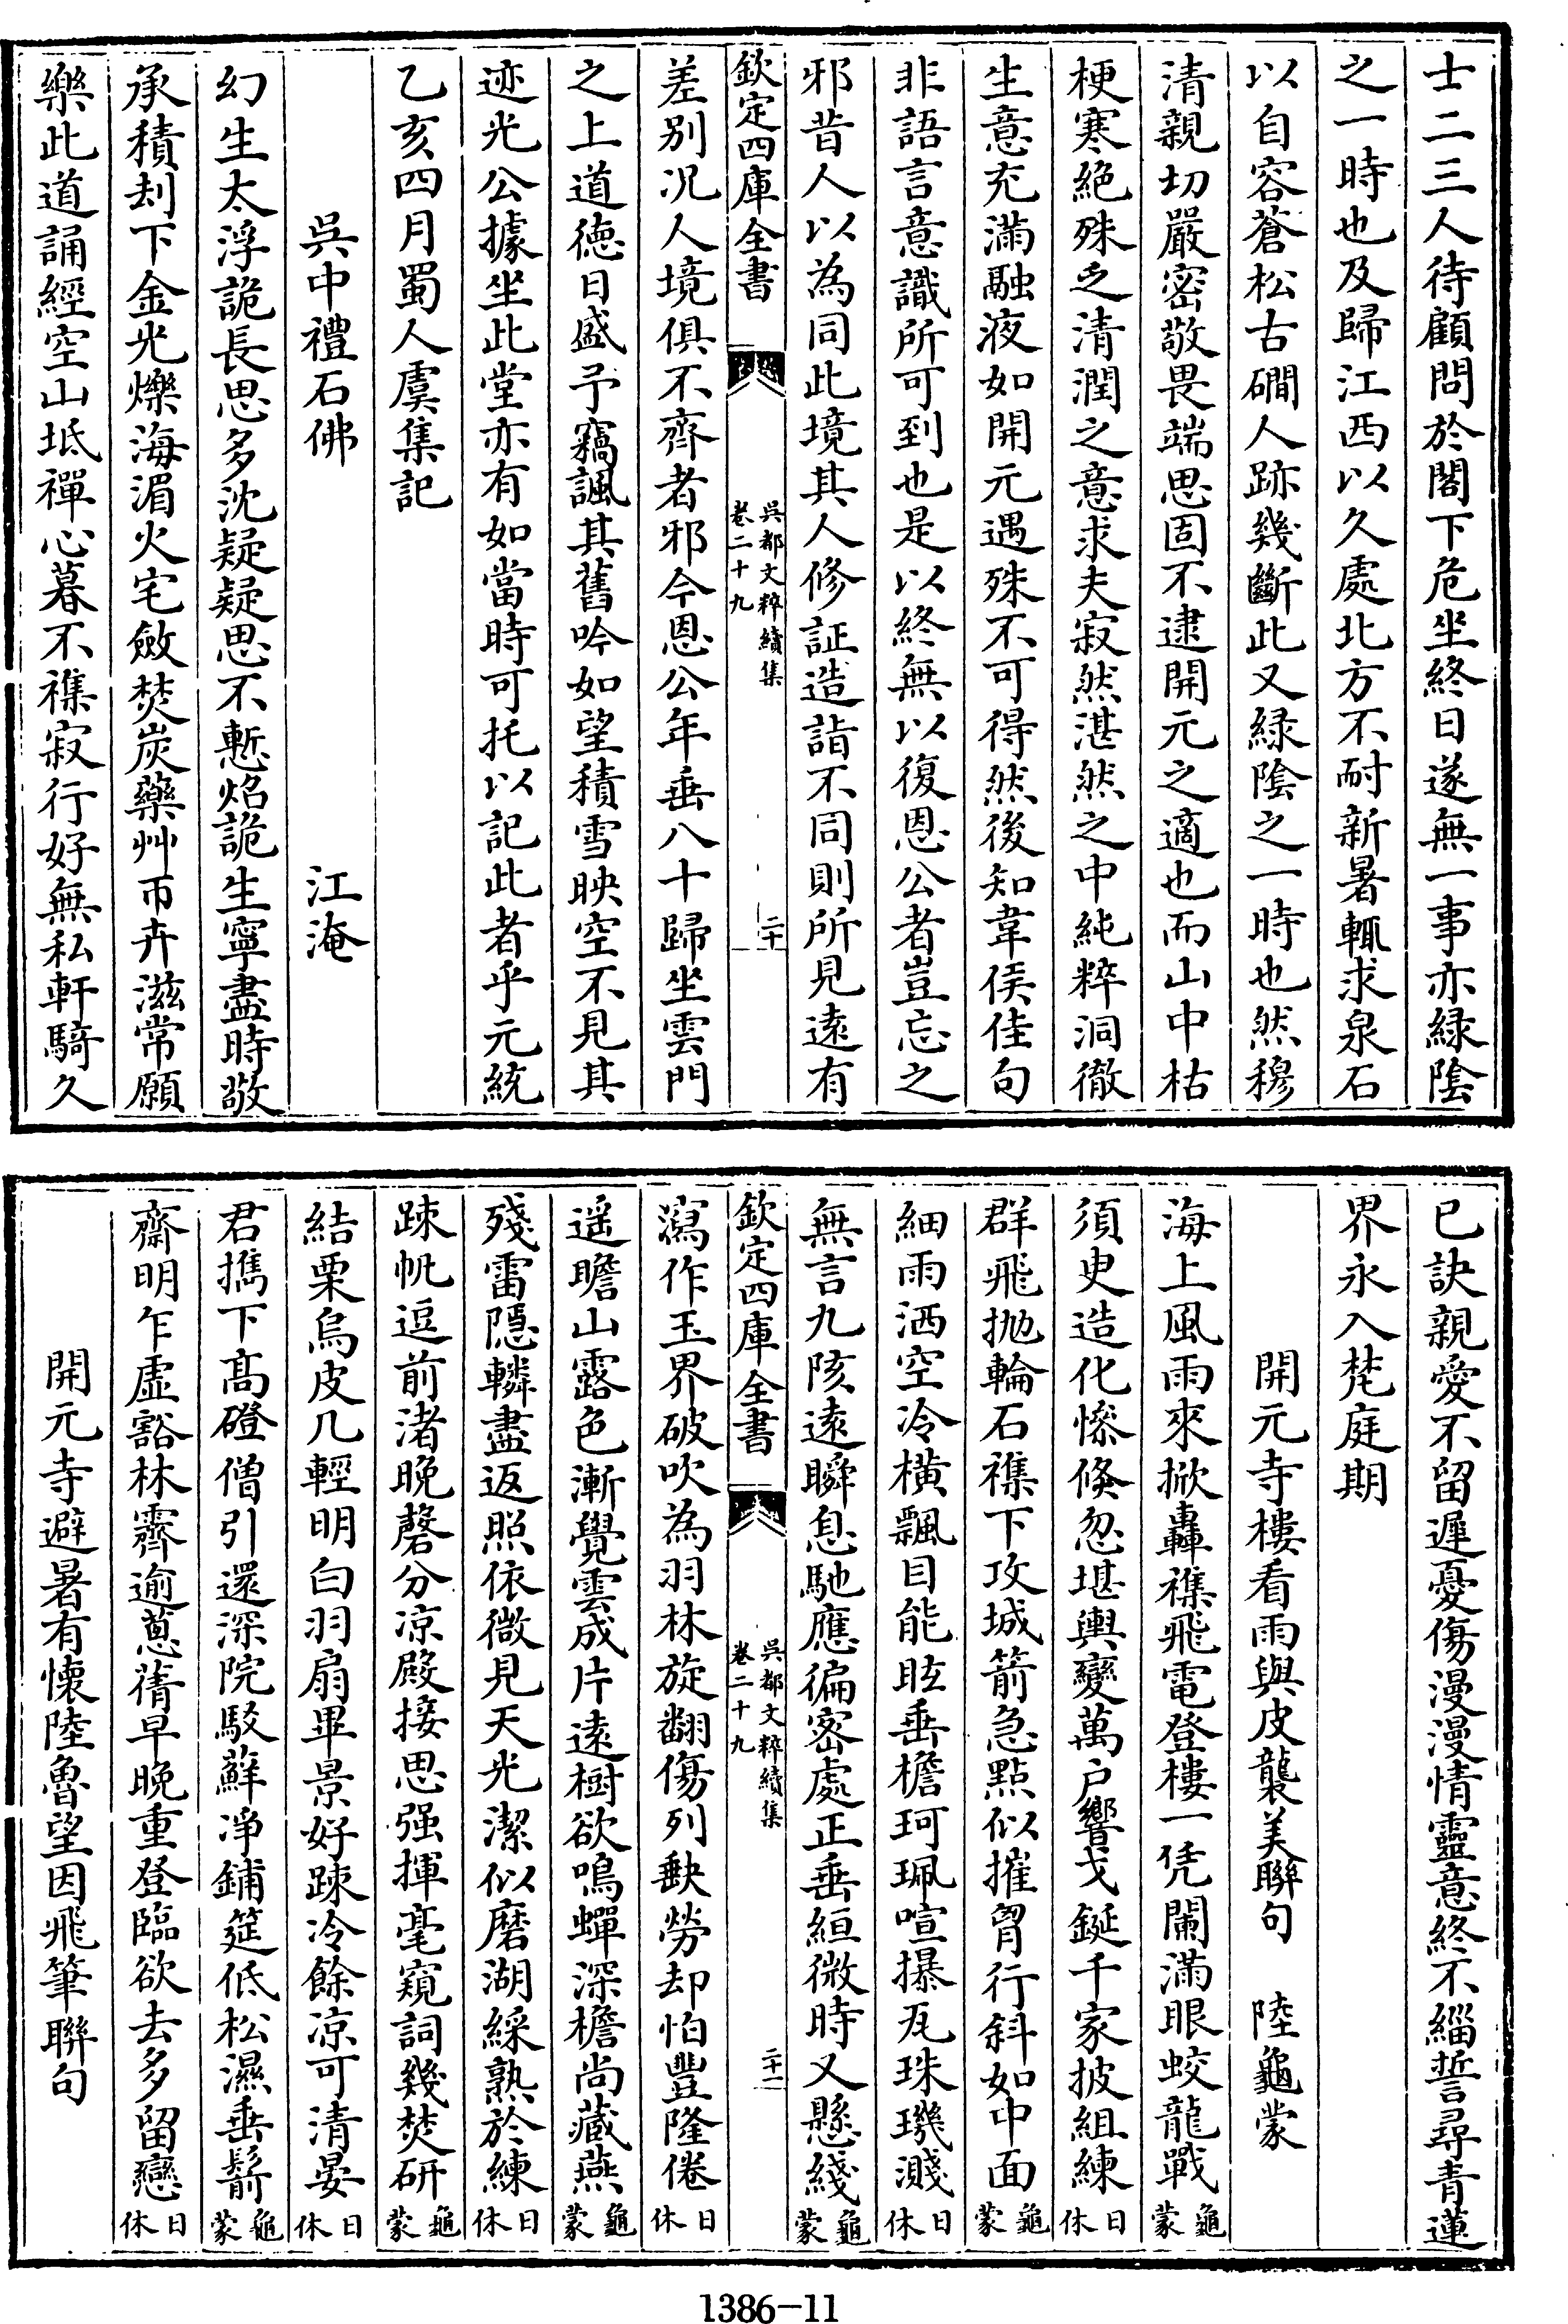 士二三人待顧問於閣下危坐終日遂無一事亦緑陰
之一時也及歸江西以久處北方不耐新暑輒求泉石
以自容蒼松古磵人跡幾斷此又緑陰之一時也然穆
清親切嚴密敬畏端思固不逮開元之適也而山中枯
梗寒絶殊乏清潤之意求夫寂然湛然之中純粹洞徹
生意充滿融液如開元遇殊不可得然後知韋侯佳句
非語言意識所可到也是以終無以復恩公者豈忘之
邪昔人以為同此境其人修証造詣不同則所見遠有
欽定四庫全書
吳都文粹續集
卷二十九
二十
差别况人境俱不齊者邪今恩公年垂八十歸坐雲門
之上道徳日盛予竊諷其舊吟如望積雪映空不見其
迹光公據坐此堂亦有如當時可托以記此者乎元統
乙亥四月蜀人虞集記
吳中禮石佛　江淹
幻生太浮詭長思多沈疑疑思不慙炤詭生寧盡時敬
承積刦下金光爍海湄火宅斂焚炭藥艸帀卉滋常願
樂此道誦經空山坻禪心暮不襍寂行好無私軒騎久
已訣親愛不留遲憂傷漫漫情靈意終不緇誓尋青蓮
界永入梵庭期
開元寺樓看雨與皮襲美聯句　陸龜蒙
海上風雨來掀轟襍飛電登樓一凭闌滿眼蛟龍戰龜蒙
須臾造化慘倐忽堪輿變萬户響戈鋋千家披組練日休
群飛抛輪石襍下攻城箭急點似摧胷行斜如中面龜蒙
細雨洒空冷横飄目能眩垂檐珂珮喧㩧瓦珠璣濺日休
無言九陔遠瞬息馳應徧密處正垂絙微時又懸綫龜蒙
欽定四庫全書
吳都文粹續集
卷二十九
二十一
瀉作玉界破吹為羽林旋翻傷列缺勞却怕豐隆倦日休
遥瞻山露色漸覺雲成片遠樹欲鳴蟬深檐尚藏燕龜蒙
殘雷隱轔盡返照依微見天光潔似磨湖綵熟於練日休
踈帆逗前渚晚磬分凉殿接思强揮毫窺詞幾焚研龜蒙
結栗烏皮几輕明白羽扇畢景好踈冷餘凉可清晏日休
君攜下髙磴僧引還深院駮蘚凈鋪筵低松濕垂鬋龜蒙
齋明乍虚豁林霽逾蔥蒨早晚重登臨欲去多留戀日休
開元寺避暑有懷陸魯望因飛筆聯句
1386-11